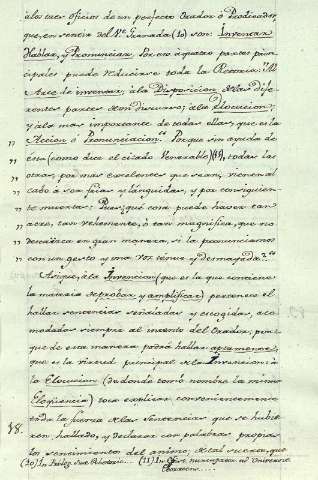 à los tres oficios de un perfecto Orador ò Predicador,
que, en sentir del Ve. Granada (10) son: Inventar
Hablar, y Pronunciar. Por eso à quatro partes prin-
cipales puede reducirse toda la Retorica: "Al
Arte de inventar, à la Disposicion de las dife-
rentes partes de un discurso; à la Elocucion;
y à la mas importante de todas ellas, que es la
" Accion ò Pronunciacion. Porque sin ayuda de
" esta (como dice el citado Venerable) (11), todas las
" otras, por mas excelentes que sean, vienen al
" cabo à ser frias y lánguidas, y por consiguien-
" te muertas: Pues ¿què cosa puede haver tan
" acre, tan vehemente, ò tan magnifica, que no
" decaezca en gran manera, si la pronunciamos
" con un gesto y una voz ténue y desmayada?
Asique, à la Invencion (que es la que contiene
la materia de probar y amplificar) pertenece el
hallar sentencias señaladas y escogidas, aco-
modadas siempre al intento del Orador, por-
que de esta manera podrá hablar aptamente,
que es la virtud principal de la Invencion: à
la Elocucion (de donde tomó nombre la misma
Eloqüencia) toca explicar convenientemente
toda la fuerza de las Sentencias que se hubie-
18. ren hallado, y declarar con palabras propias
los sentimientos del animo; de tal suerte, que
(10) In (11) In